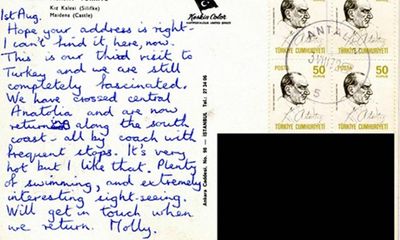 Kız Kalesi (Silifke)
Maidens (Castle)
1st Aug.
Hope your address is right-
I can't find it here, now.
This is our third visit to
Turkey and we are still
completely fascinated.
We have crossed central
Anatolia and are now
return along the south
coast - all by coach with
frequent stops. It's very
hot but I like that. Plenty
of swimming, and extremely
interesting sight-seeing.
Will get in touch when
we return. Molly.
Keskin Color
Ankara Caddesi, No. 98 - ISTANBUL Tel.: 27 24 06
ANTAL
POSTA 50
KURUŞ
TÜRKİYE CUMHURİYETİ
POSTA 50
KURUŞ
TÜRKİYE CUMHURİYETİ
50
TÜRKİYE CUMHURİYETİ
50
TÜRKİYE CUMHURİYETİ